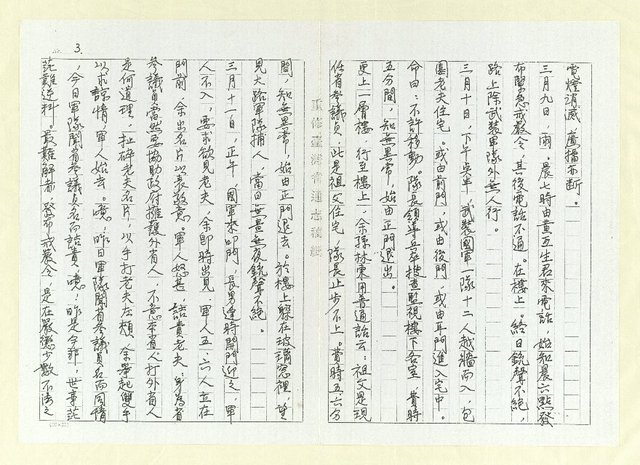 電燈消滅,廣播不斷。
三月九日,雨,晨七時由黃互生君來電話,始知晨六點發
布緊急戒嚴令,其後電話不通。在樓上。終日銃聲不絕,
路上除武裝軍隊外無人行。
三月十日,下午英軍,武裝國軍一隊十二人越牆而入,包
圍老夫住宅。或由前門,或由後門,或由耳門進入宅中。
命曰:不許移動。隊長領導兵卒搜查監視樓下各室,費時
五分間,知無異常,始由正門退出。
更上一層樓,行至樓上,余孫林東用普通話云:祖父是現
任省參議員,此是祖父住宅,隊長止步不上。費時五六分
間,知無異常,始由正門退去。於樓上躲在玻璃窓裡,望
見大路軍隊捕人,當日無晝無夜銃聲不絕。
三月十一日,正午,國軍來叩門,長男連時開門迎之,軍
人不入,要求欲見老夫,余即時出見,軍人五、六人立在
門前,余出名片以表敬意。軍人怒甚,詰責老夫,身為省
參議員當然要協助政府擁護外省人,不意本省人打外省人
是何道理,扯碎老夫名片,以手打老夫左頰,余舉起雙手
以求諒情,軍人始去。噫,昨日軍隊聞省參議員名而同情
,今日軍隊聞省參議員名而詰責,噫,昨是今非,世事茫
茫難逆料。最難解者,發布戒嚴令,是在嚴懲少數不法之
3.
重修臺灣省通志稿紙